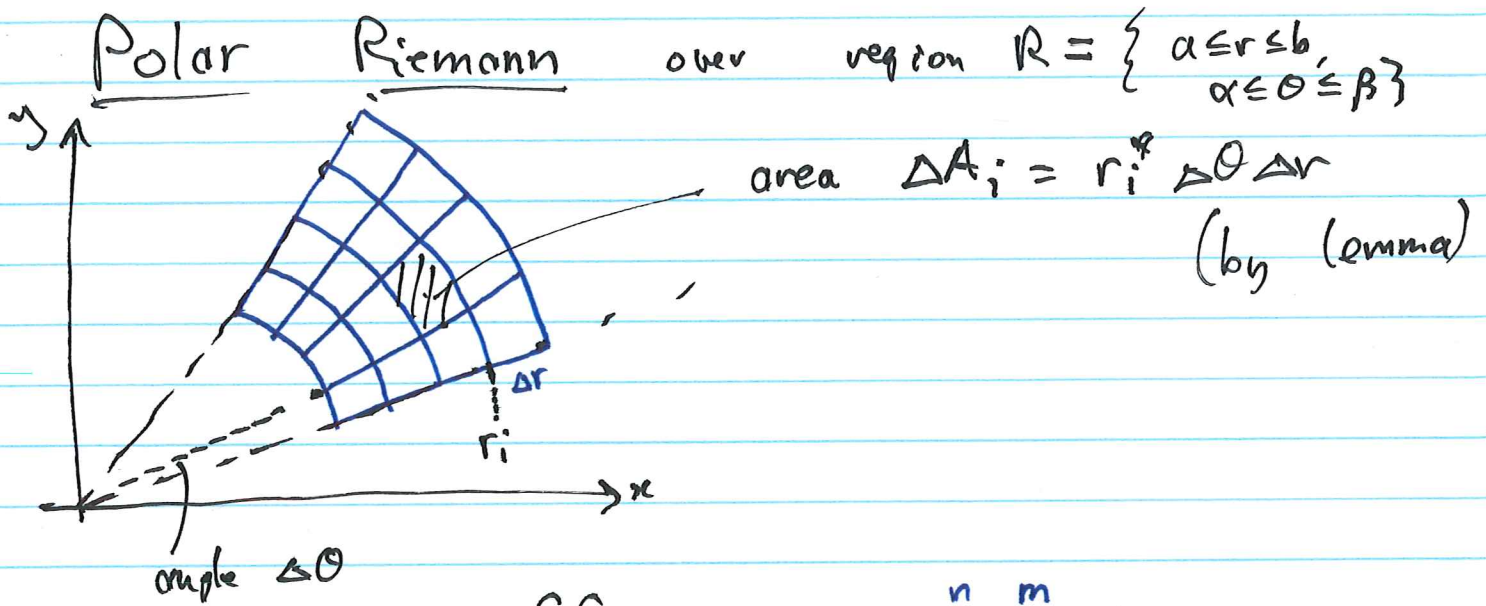 Polar Riemann over region R = { a ≤ r ≤ b,
α ≤ θ ≤ β }
y
area ΔA_i = r_i* Δθ Δr
(by lemma)
Δr
r_i
x
angle Δθ
n m